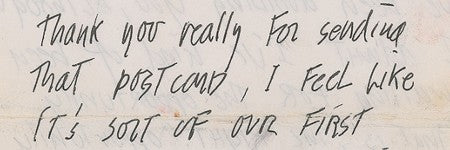 Thank you really For sending
That postcard, I Feel like
It's sort of our First